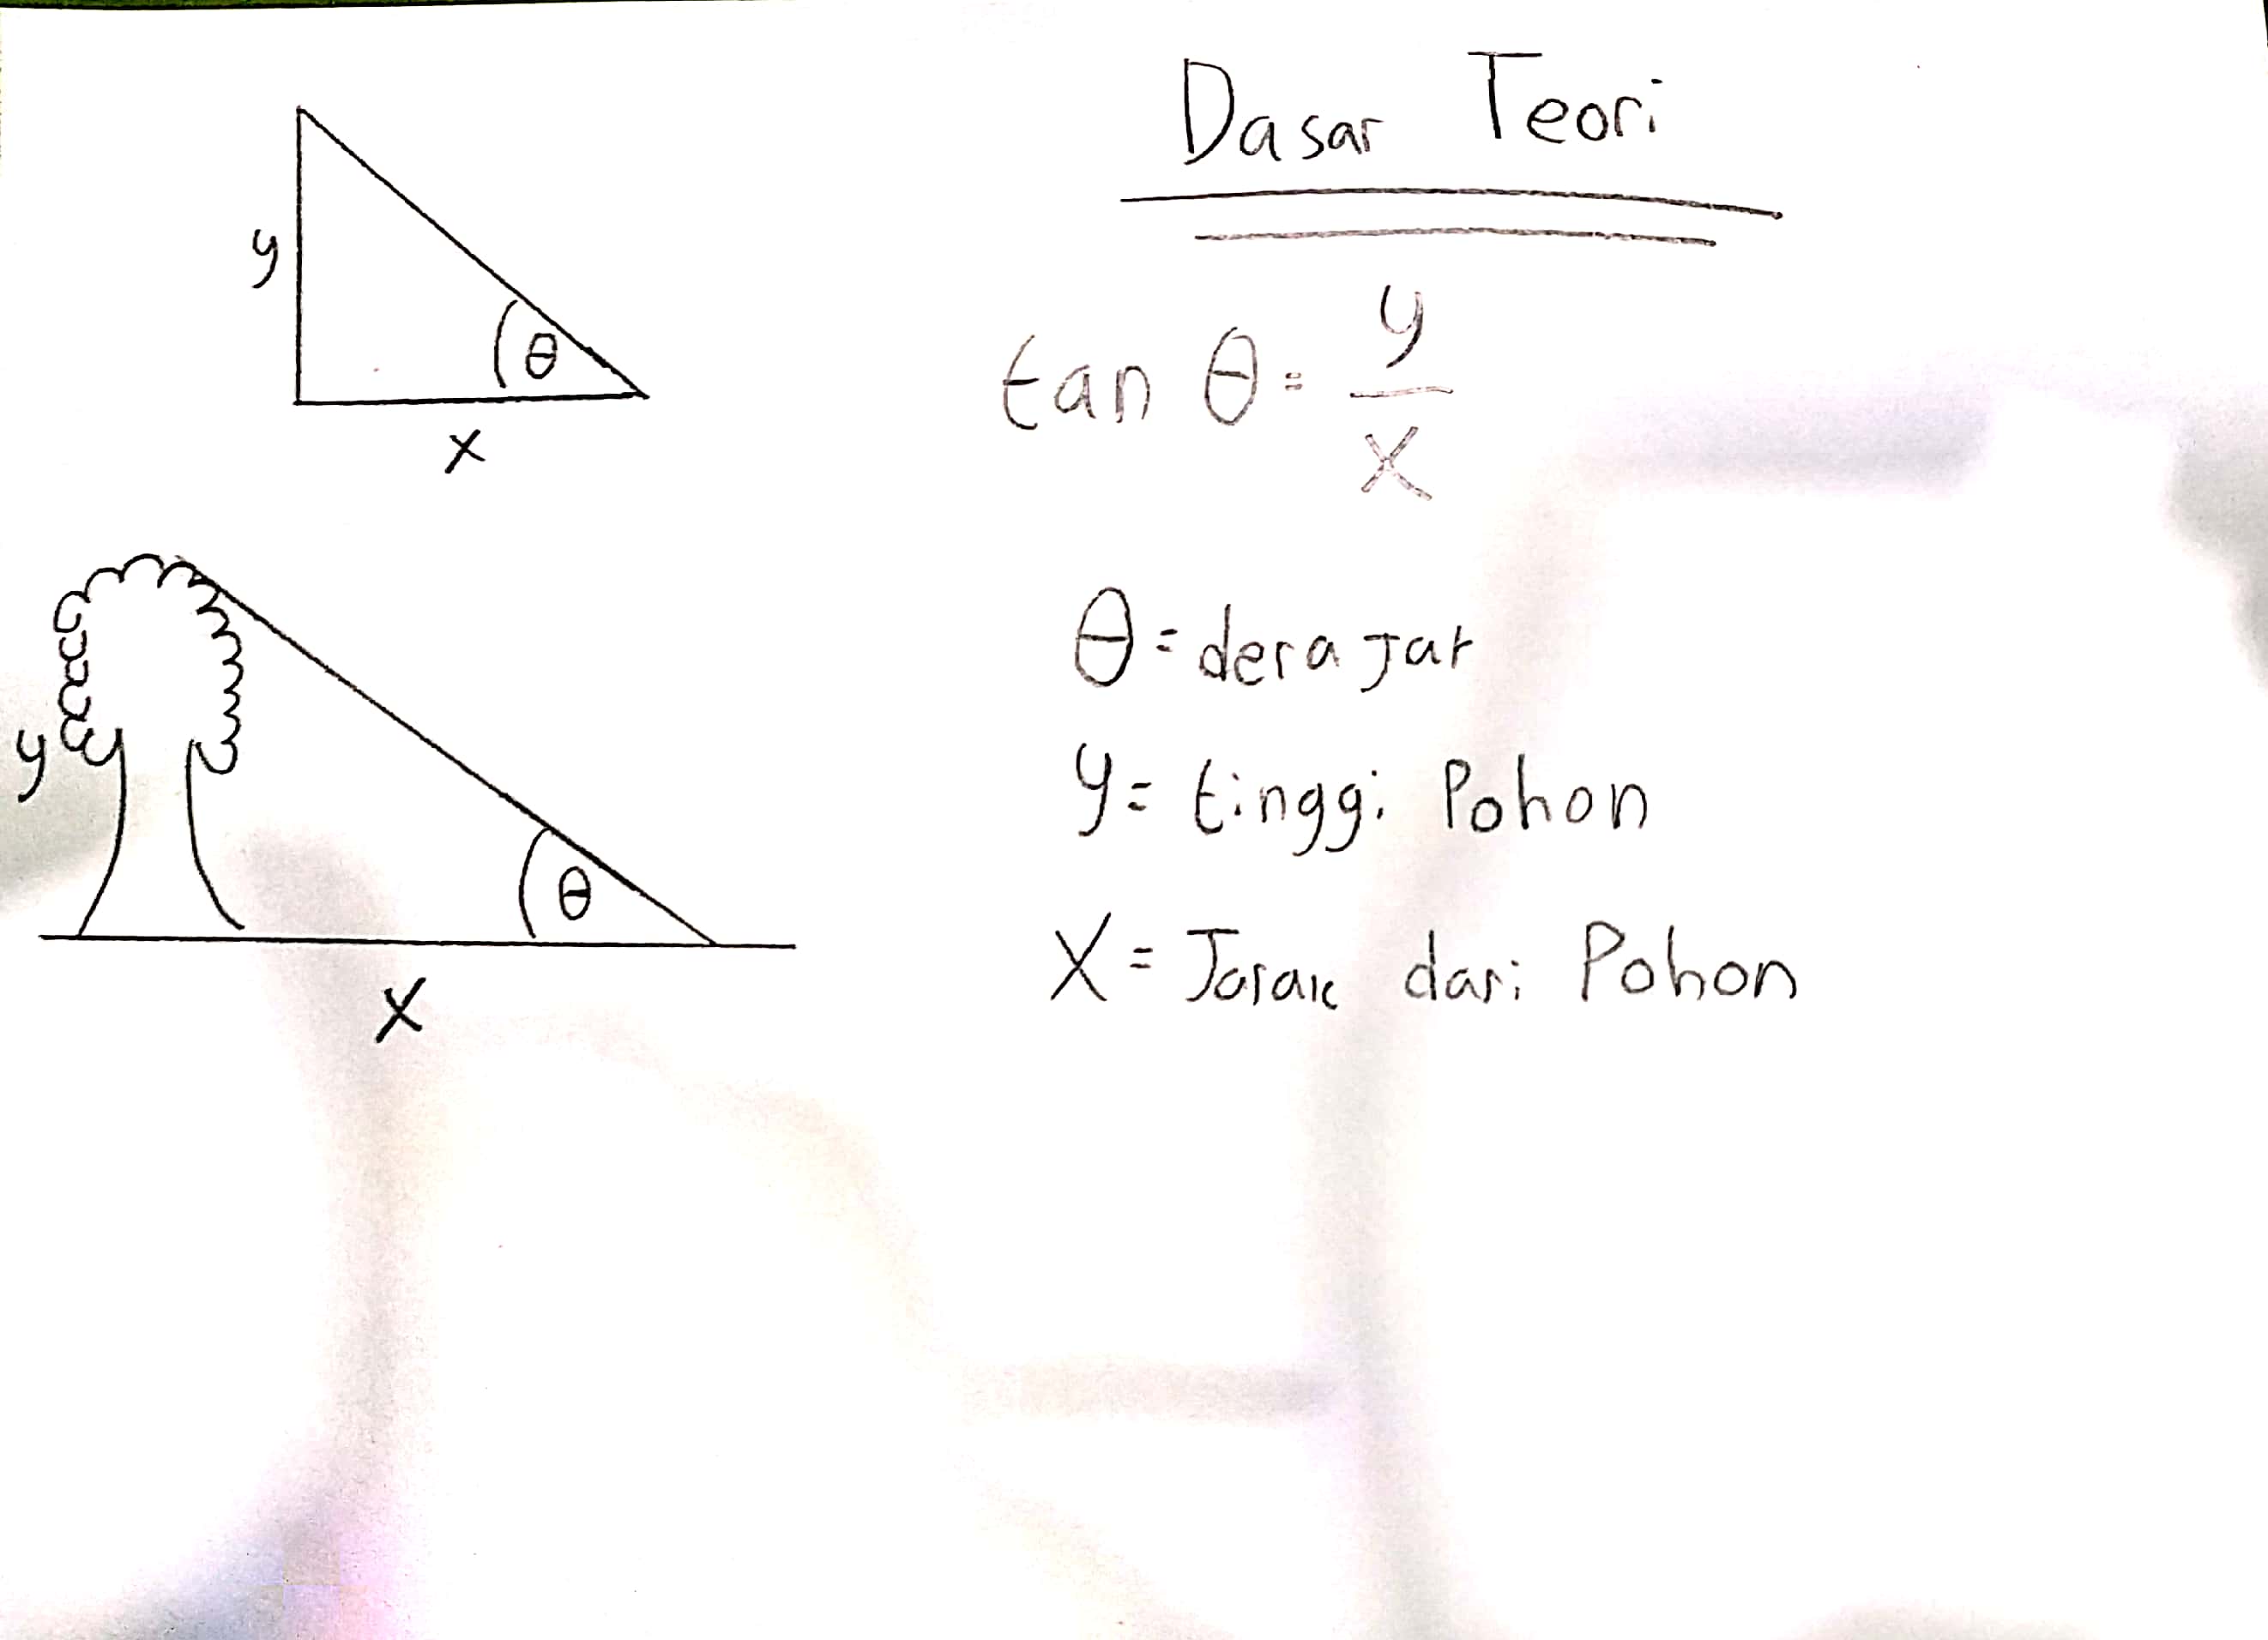 Dasar Teori
y
θ
x
tan θ = y/x
y
θ
x
θ = derajat
y = tinggi Pohon
X = Jarak dari Pohon